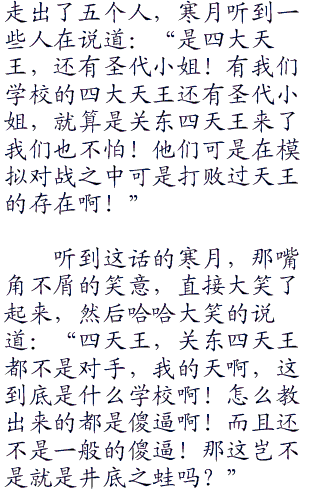 走出了五个人，寒月听到一
些人在说道：“是四大天
王，还有圣代小姐！有我们
学校的四大天王还有圣代小
姐，就算是关东四天王来了
我们也不怕！他们可是在模
拟对战之中可是打败过天王
的存在啊！”
听到这话的寒月，那嘴
角不屑的笑意，直接大笑了
起来，然后哈哈大笑的说
道：“四天王，关东四天王
都不是对手，我的天啊，这
到底是什么学校啊！怎么教
出来的都是傻逼啊！而且还
不是一般的傻逼！那这岂不
是就是井底之蛙吗？”